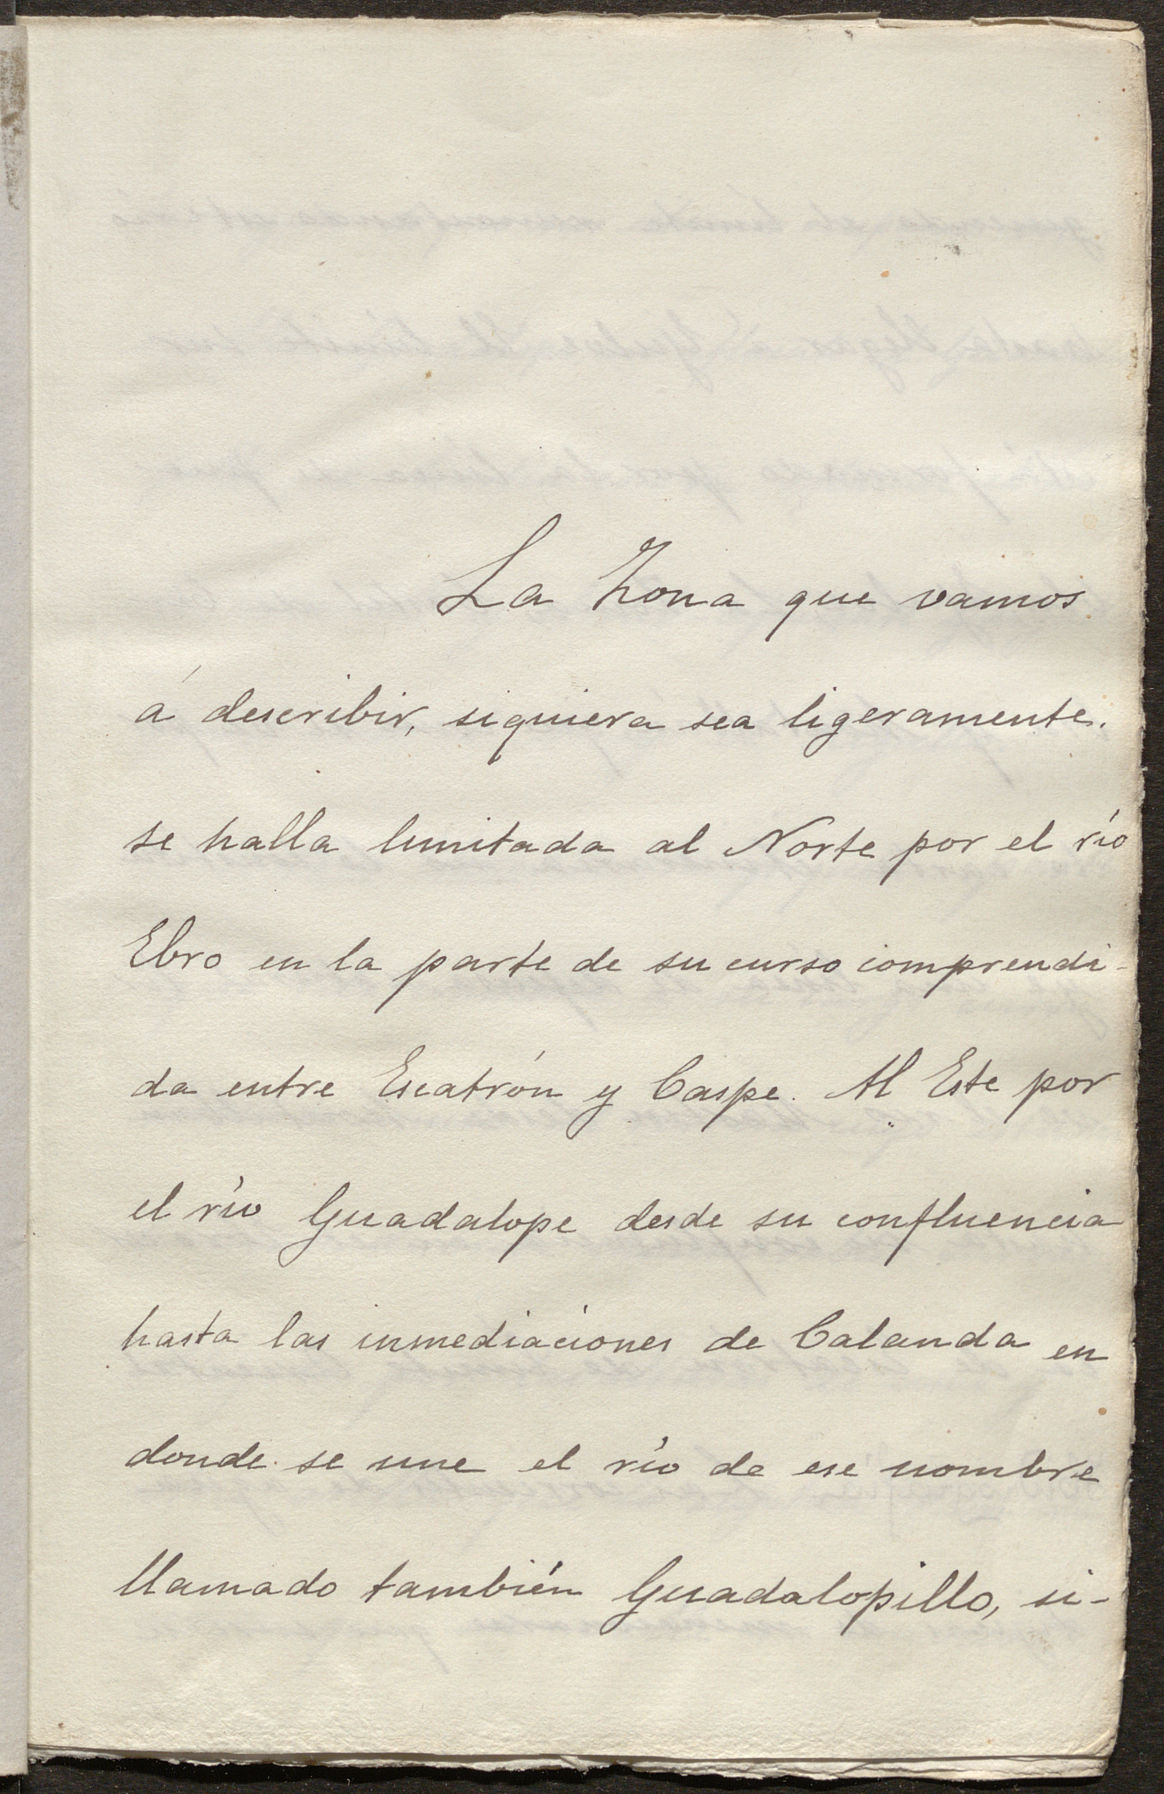 La Zona que vamos
á describir, siquiera sea ligeramente.
se halla limitada al Norte por el río
Ebro en la parte de su curso comprendi-
da entre Escatrón y Caspe. Al Este por
el río Guadalope desde su confluencia
hasta las inmediaciones de Calanda en
donde se une el río de ese nombre
llamado también Guadalopillo, si-